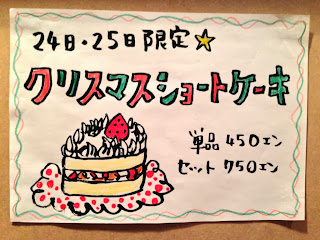 24日・25日限定☆
クリスマスショートケーキ
単品 450エン
セット 750エン